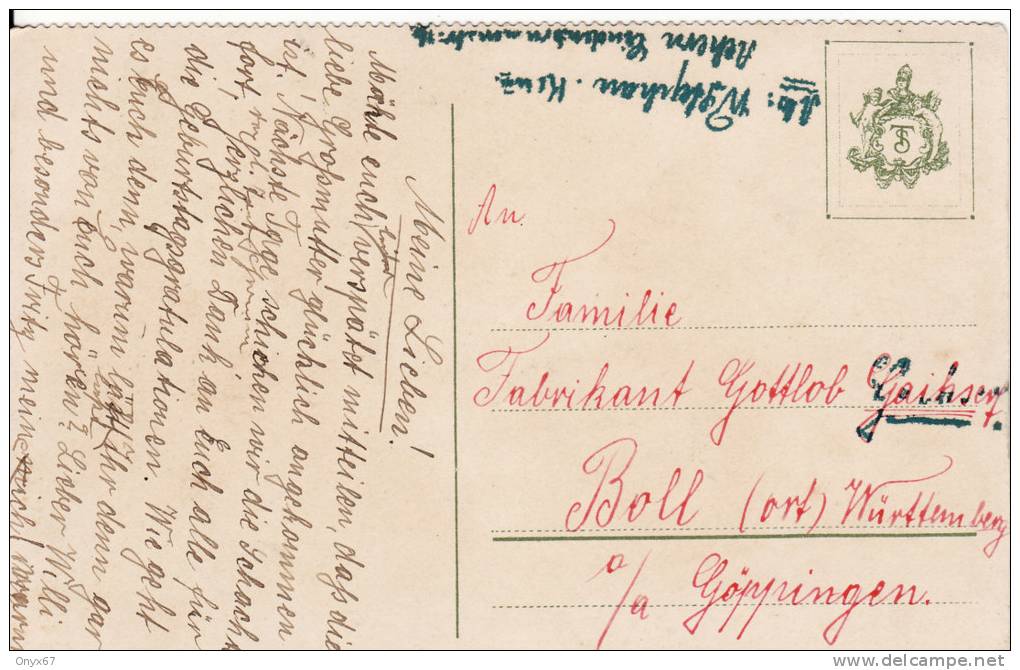 Meine Lieben!
Möchte euch leider verspätet mitteilen, dass die
liebe Großmutter glücklich angekommen
ist. Nächste Tage schicken wir die Schacht
fort.
Herzlichen Dank an Euch alle für
die Geburtstagsgratulationen. Wie geht
es Euch denn, warum läßt Ihr denn gar
nichts von Euch hören? Lieber Willi
und besonders Fritz
Ab: W. Stephan
Achern
TS
An
Familie
Fabrikant Gottlob Gaihser
Gaihser
Boll (ort) Württemberg
a/a Göppingen.
Onyx67
www.delcampe.net